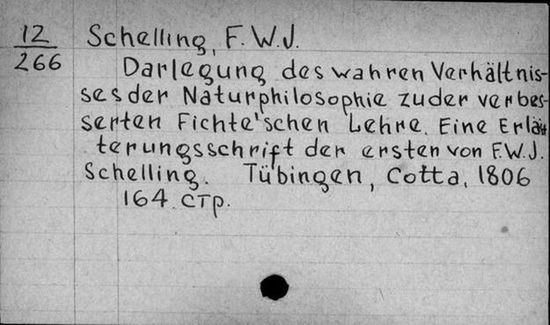 12/266
Schelling, F.W.J.
Darlegung des wahren Verhältnis-
ses der Naturphilosophie zuder verbes-
serten Fichte'schen Lehre. Eine Erläu-
terungsschrift der ersten von F.W.J.
Schelling. Tübingen, Cotta, 1806
164 стр.